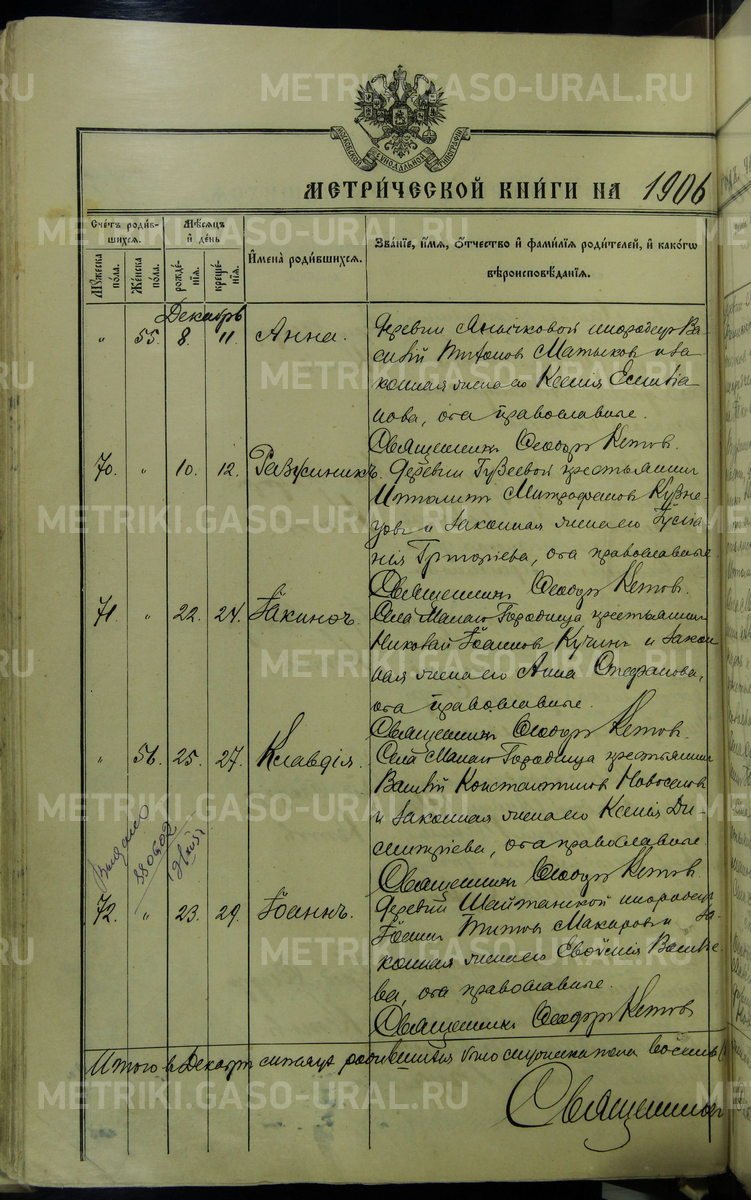 METRIKI.GASO-URAL.RU
МОСКОВСКОЙ СѴНОДАЛЬНОЙ ТИПОГРАФІИ
МЕТРИ́ЧЕСКОЙ КНИ́ГИ НА 1906
Сче́тъ роди́в-
шихся.
Мꙋ́жеска по́ла.
Же́нска по́ла.
Мѣ́сяцъ и҆ де́нь
рожде́-нїя.
креще́-нїя.
И҆мена̀ роди́вшихся.
Зва́нїе, и҆́мя, ѻ҆́тчество и҆ фами́лїя роди́телей, и҆ како́гѡ
вѣроисповѣ́данїя.
Декабрь
" 55. 8. 11. Анна.
Деревни инородецъ Ва-
силій Титовъ и за-
конная жена его Ксенія
нова, оба православные.
Священникъ Ѳеодоръ Кетов.
70. " 10. 12.
Деревни Гуляевой крестьянинъ
Ипполитъ Митрофановъ Кузне-
цовъ и законная жена его
нія Григоріева, оба православные
Священникъ Ѳеодоръ Кетов.
71. " 22. 24.
Села крестьянинъ
Николай Іоанновъ Кучинъ и закон-
ная жена его Анна Стефанова,
оба православные.
Священникъ Ѳеодоръ Кетов.
" 56. 25. 27. Клавдія.
Села крестьянинъ
Василій Константиновъ Новоселов
и законная жена его Ксенія Ди-
митріева, оба православные.
Священникъ Ѳеодоръ Кетов.
Выдано
72. " 23. 29. Іоаннъ.
Деревни Шайтанской инородецъ
Іоаннъ Титовъ Макаровъ и за-
конная жена его Евдокія Василье-
ва, оба православные.
Священникъ Ѳеодоръ Кетов
Итого в Декабрѣ мѣсяцѣ родившихся было мужеска пола восемь
Священникъ